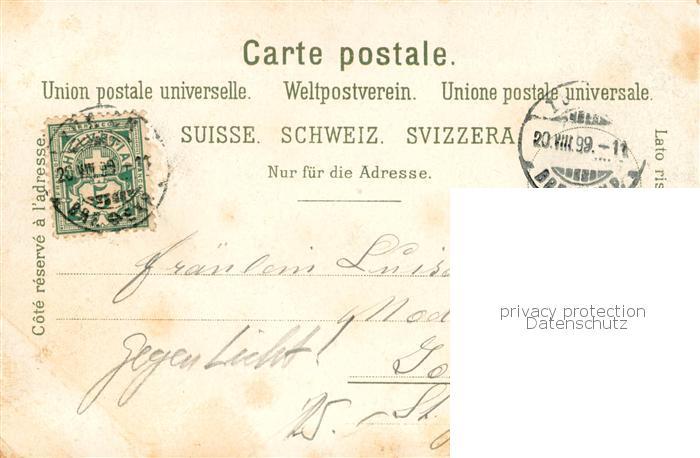 Carte postale.
Union postale universelle. Weltpostverein. Unione postale universale.
SUISSE. SCHWEIZ. SVIZZERA
Nur für die Adresse.
Côté réservé à l'adresse.
Lato ris
HELVETIA
20.VIII.99.-11
20.VIII.99.-11
Fräulein Luis
gegen Licht!
25.-
St.
privacy protection
Datenschutz